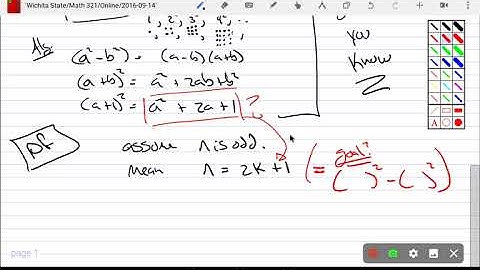 Wichita State/Math 321/Online/2016-09-14
1, 2, 3, 4, ...
you
know
(a²-b²) = (a-b)(a+b)
(a+b)² = a² + 2ab + b²
(a+1)² = a² + 2a + 1 ?
pf
assume n is odd.
mean n = 2k+1 ( = goal? ( )² - ( )² )
page 1